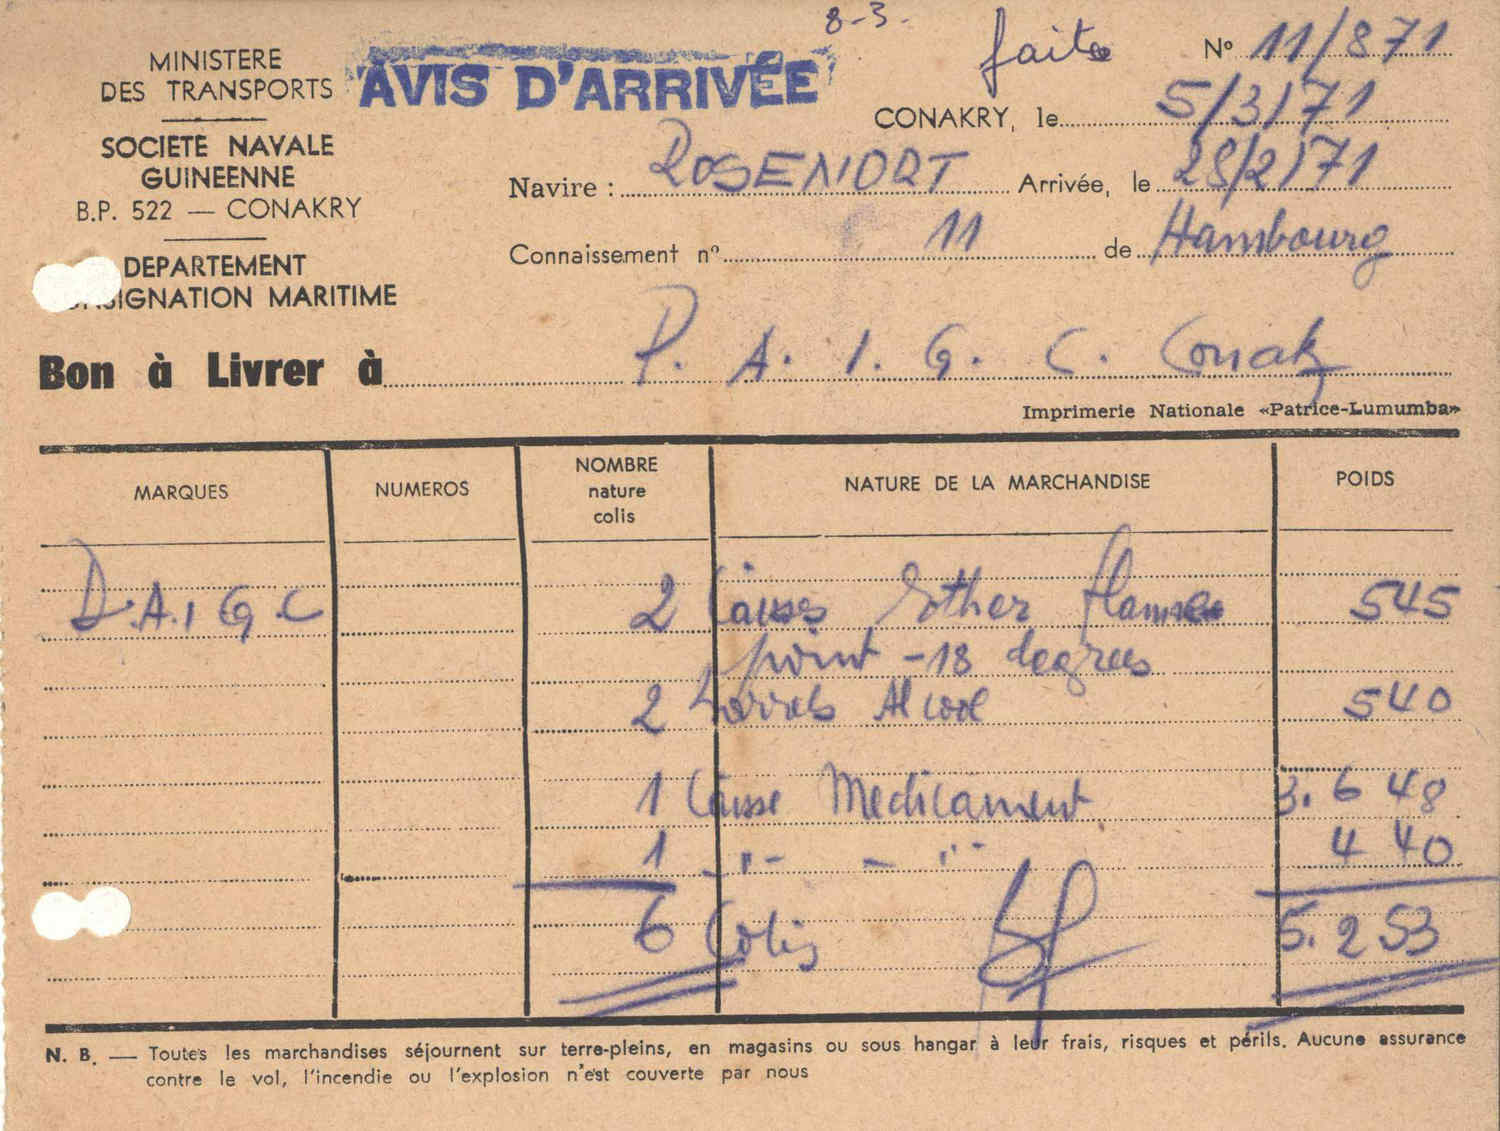 8-3.
faite
N° 11/871
MINISTERE
DES TRANSPORTS
AVIS D'ARRIVÉE
CONAKRY, le 5/3/71
SOCIETE NAVALE
GUINEENNE
B.P. 522 — CONAKRY
Navire : ROSENORT Arrivée, le 28/2/71
Connaissement n° 11 de Hambourg
DEPARTEMENT
CONSIGNATION MARITIME
Bon à Livrer à P. A. I. G. C. Conaky
Imprimerie Nationale «Patrice-Lumumba»
MARQUES NUMEROS NOMBRE nature colis NATURE DE LA MARCHANDISE POIDS
P.A.I G.C 2 Caisses Esther flamme 545
point -18 degrees
2 barrels Alcool 540
1 Caisse Medicament 3.648
1 -"- - -"- 440
6 Colis 5.253
N. B. — Toutes les marchandises séjournent sur terre-pleins, en magasins ou sous hangar à leur frais, risques et périls. Aucune assurance
contre le vol, l'incendie ou l'explosion n'est couverte par nous